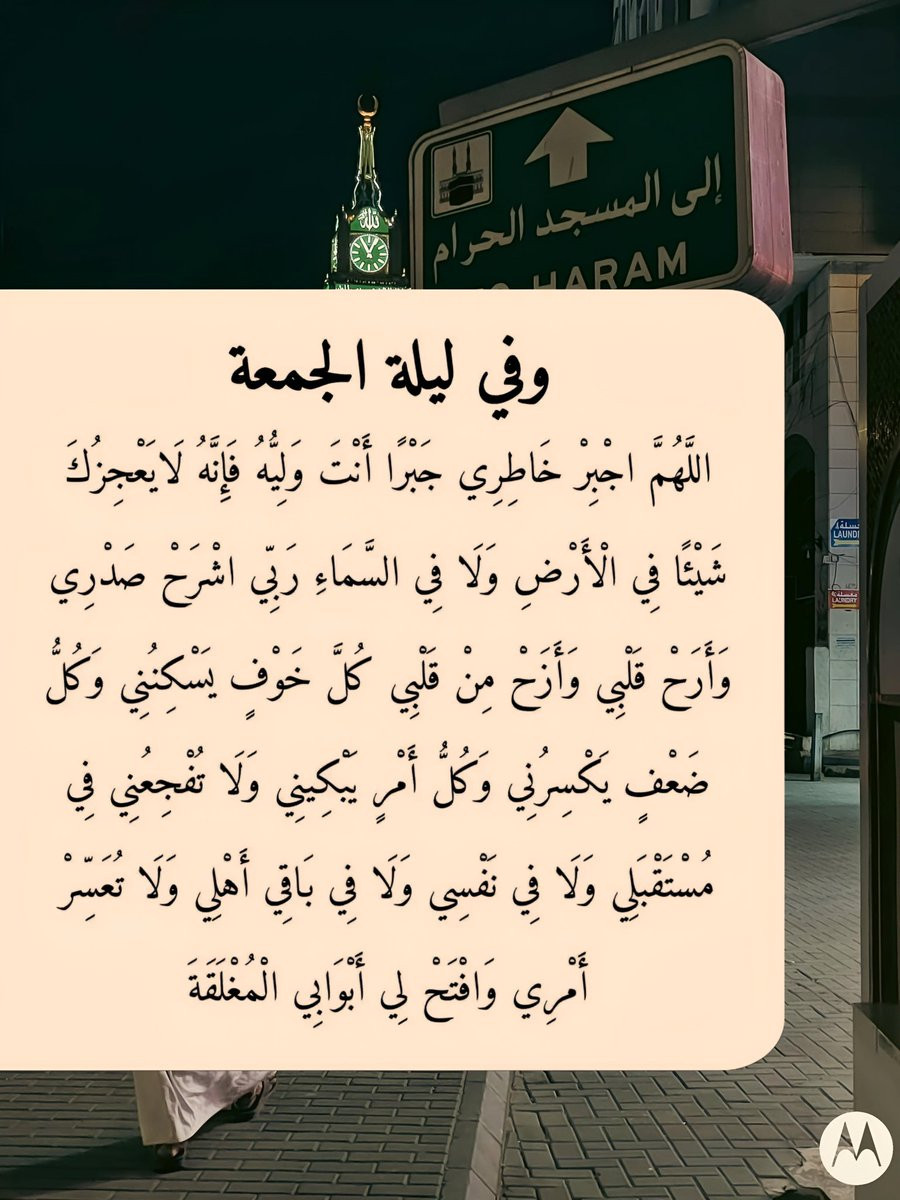 إلى المسجد الحرام
HARAM
وفي ليلة الجمعة
اللَّهُمَّ اجْبِرْ خَاطِرِي جَبْرًا أَنْتَ وَلِيُّهُ فَإِنَّهُ لَايَعْجِزكَ
شَيْئًا فِي الْأَرْضِ وَلَا فِي السَّمَاءِ رَبِّي اشْرَحْ صَدْرِي
وَأَرَحْ قَلْبِي وَأَزَحْ مِنْ قَلْبِي كُلَّ خَوْفٍ يَسْكِنُنِي وَكُلُّ
ضَعْفٍ يَكْسِرُنِي وَكُلُّ أَمْرٍ يَبْكِينِي وَلَا تُفْجِعُنِي فِي
مُسْتَقْبَلِي وَلَا فِي نَفْسِي وَلَا فِي بَاقِي أَهْلِي وَلَا تُعَسِّرْ
أَمْرِي وَافْتَحْ لِي أَبْوَابِي الْمُغْلَقَةَ
مغسلة
LAUNDRY